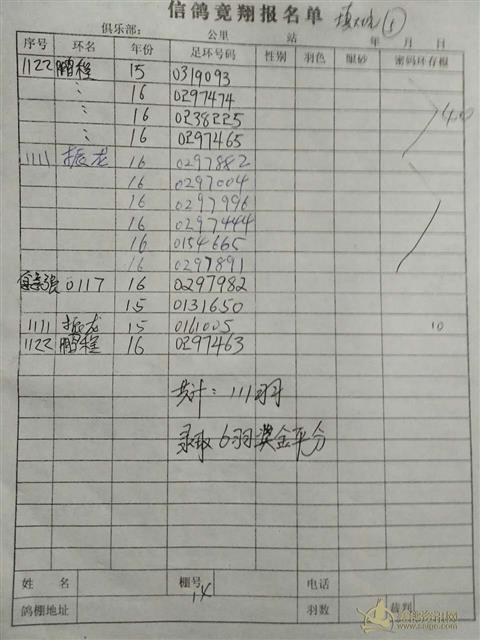 信鸽竟翔报名单 ⑤
俱乐部： 公里 站 年 月 日
序号 环名 年份 足环号码 性别 羽色 眼砂 密码环存根
1122 鹏程 15 0319093
16 0297474
16 0238225
16 0297465
1111 振龙 16 0297882
16 0297004
16 0297996
16 0297444
16 0154665
16 0297891
0117 16 0297982
15 0131650
1111 振龙 15 0161005 10
1122 鹏程 16 0297463
共计：111羽
录取6羽奖金平分
姓名 棚号 14 电话
鸽棚地址 羽数 裁判